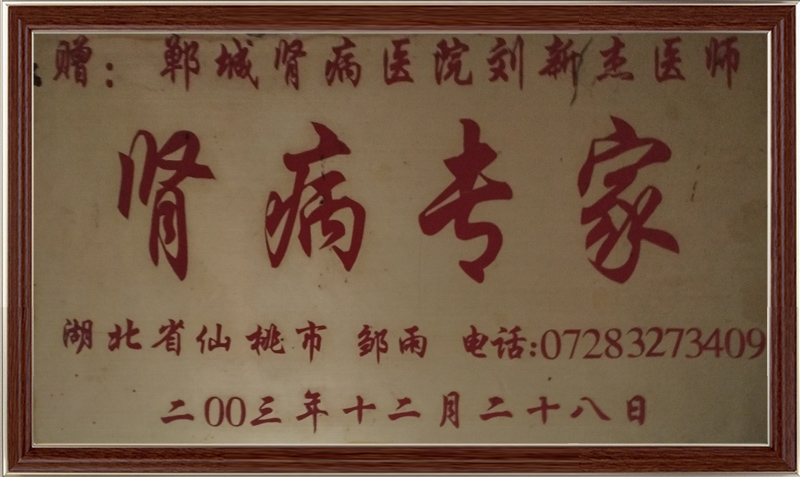 赠：郸城肾病医院刘新杰医师
肾病专家
湖北省仙桃市 邹雨 电话:07283273409
二00三年十二月二十八日